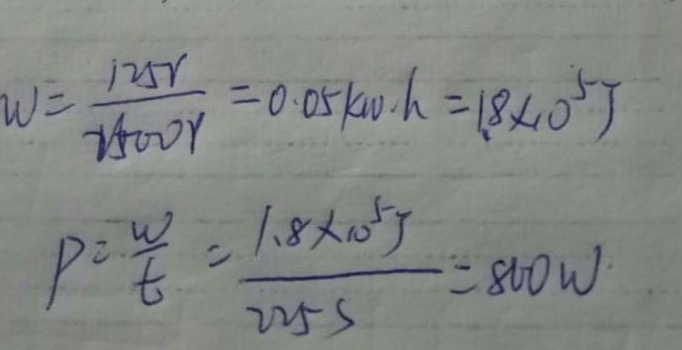 W = 125r / 2500r = 0.05 kw.h = 1.8×10⁵J
P = W / t = 1.8×10⁵J / 225s = 800W